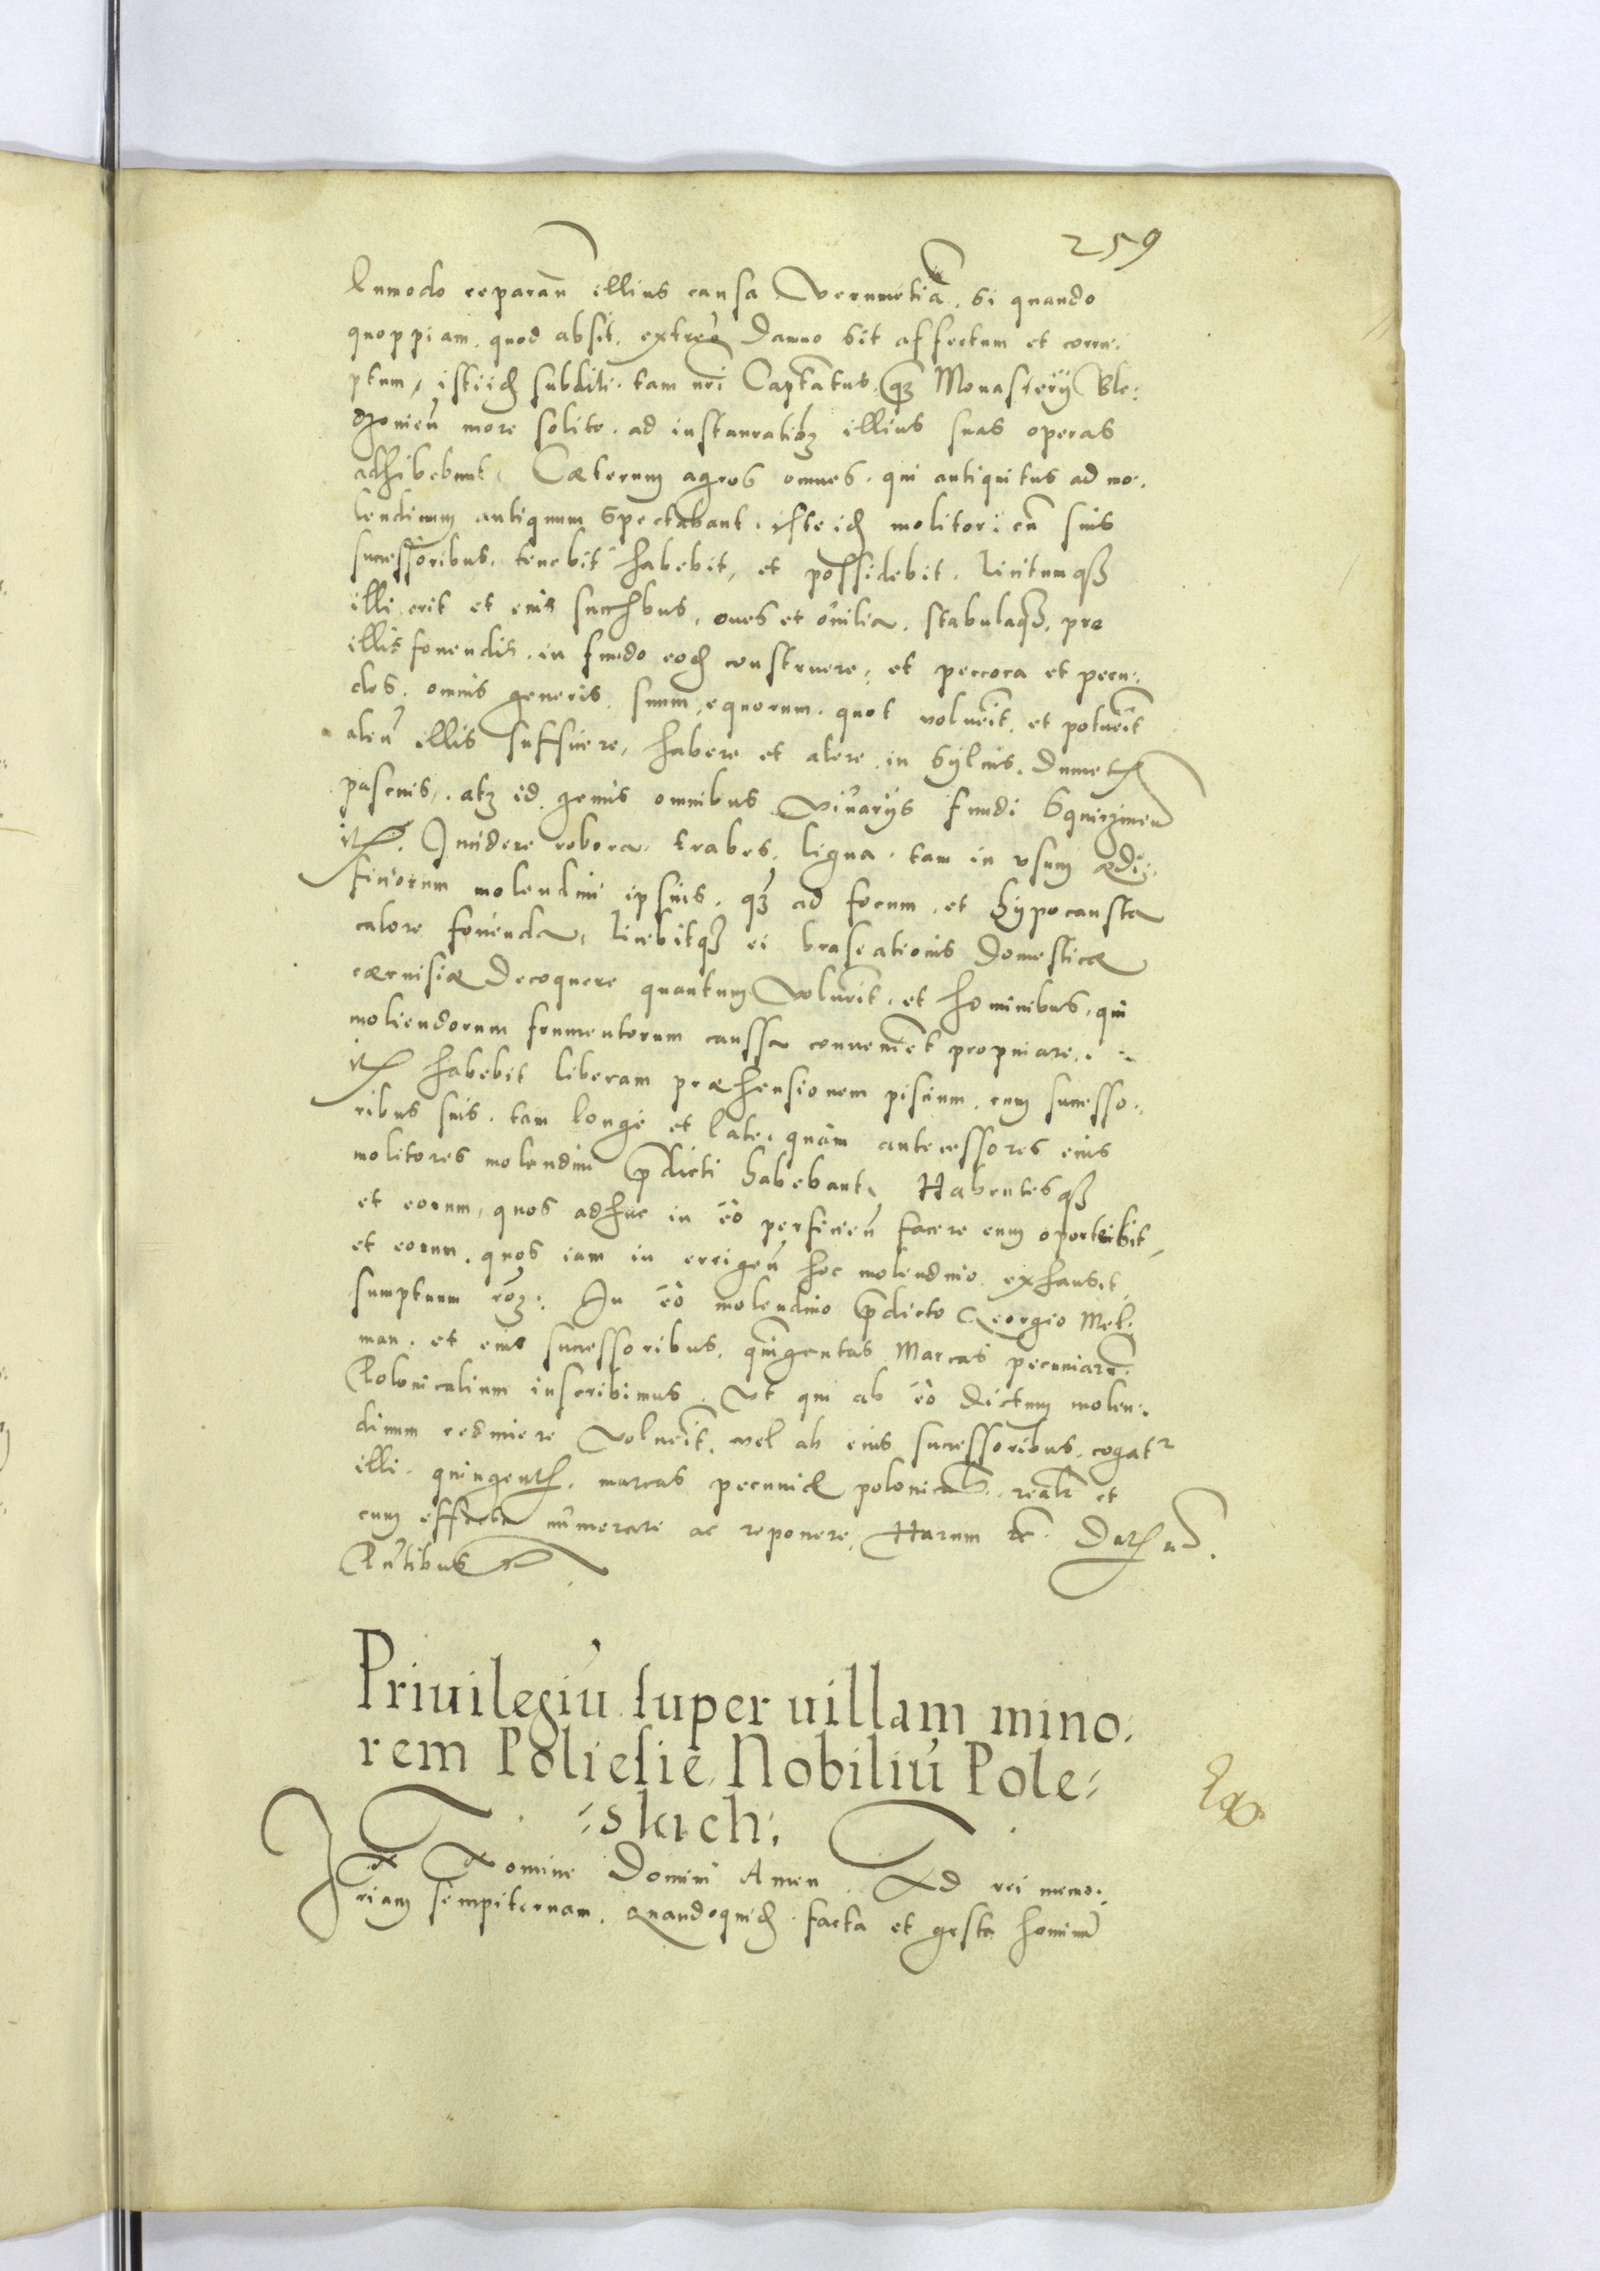 259
quomodo reparan illius causa verumetia. Si quando
quoppiam. quod absit. extreo damno sit affectum et corru:
ptum, istiid subditi. tam nri Captatus. qz Monasterij Ble:
donien more solito. ad instauratioz illius suas operas
adhibebunt. Cæterum agros omnes. qui antiquitus ad mo:
lendinum antiquum spectabant. iste id molitor cu suis
successoribus. tenebit habebit, et possidebit. Licitumqz
illi erit et eius succbus, oues et ouilia. stabulaqz, pro
illis fouendis. in fundo eod construere, et peccora et pecu:
des. omnis generis. suum, equorum. quot voluerit, et poterit
alen illis sufficere, habere et alere in syluis. dumet
pascuis, atz id genus omnibus viuarijs fundi
It. Incidere robora. trabes. ligna. tam in vsum ædi:
ficiorum molendini ipsius. qz ad focum, et hypocausta
calore fouenda, licebitqz ei braseationis domesticæ
cæruisiæ decoquere quantum voluerit. et hominibus, qui
moliendorum frumentorum caussa conuenient propinare.
It habebit liberam præhensionem piscium. cum successo:
ribus suis. tam longe et late. quam antecessores eius
molitores molendini pdicti habebant. Habentesqz
et eorum, quos adhuc in eo perficien facere eum oportebit
et eorum. quos iam in errigen hoc molendino exhausit,
sumptuum roz: In eo molendino pdicto Georgio Mel:
man. et eius successoribus. quingentas Marcas pecuniar.
Polonicalium inscribimus. Vt qui ab eo dictum molen:
dinum redimere voluerit. vel ab eius successoribus. cogat
illi quingent. marcas pecuniæ polonical. realr et
cum effectu numerare ac reponere, Harum &c. Dat
Pntibus
Priuilegiu super uillam mino:
rem Poliesie Nobiliu Pole=
=skich.
In Nomine Domini Amen. Ad rei memo:
riam sempiternam. Quandoquid facta et gesta hominu